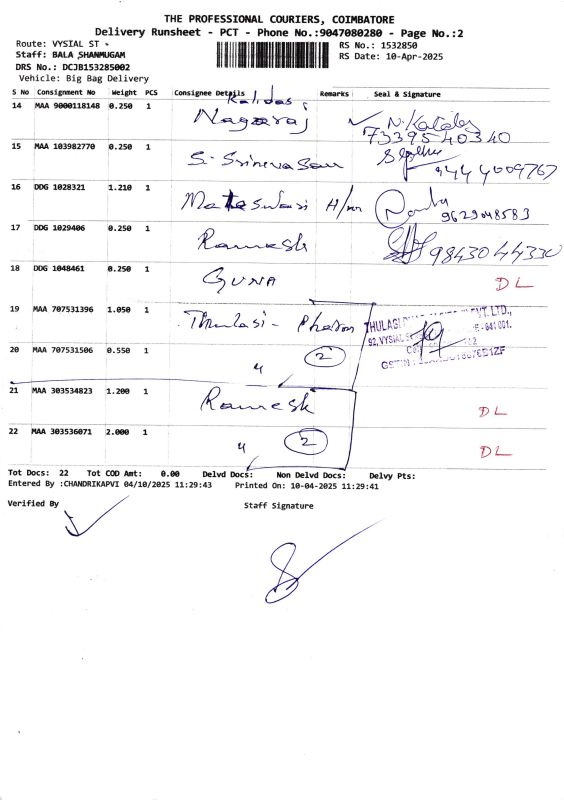 THE PROFESSIONAL COURIERS, COIMBATORE
Delivery Runsheet - PCT - Phone No.:9047080280 - Page No.:2
Route: VYSIAL ST -
Staff: BALA SHANMUGAM
DRS No.: DCJB153285002
Vehicle: Big Bag Delivery
RS No.: 1532850
RS Date: 10-Apr-2025
S No Consignment No Weight PCS Consignee Details Remarks Seal & Signature
14 MAA 9000118148 0.250 1 Kalidas Nagaraj 7339540340
15 MAA 103982770 0.250 1 S. Srinivasan 9444009767
16 DDG 1028321 1.210 1 H/m 9629048583
17 DDG 1029406 0.250 1 Ramesh 9843044330
18 DDG 1048461 0.250 1 GUNA DL
19 MAA 707531396 1.050 1 Thulasi - Pharm THULASI
20 MAA 707531506 0.550 1 " 2
21 MAA 303534823 1.200 1 Ramesh DL
22 MAA 303536071 2.000 1 " 2 DL
Tot Docs: 22 Tot COD Amt: 0.00 Delvd Docs: Non Delvd Docs: Delvy Pts:
Entered By :CHANDRIKAPVI 04/10/2025 11:29:43 Printed On: 10-04-2025 11:29:41
Verified By Staff Signature